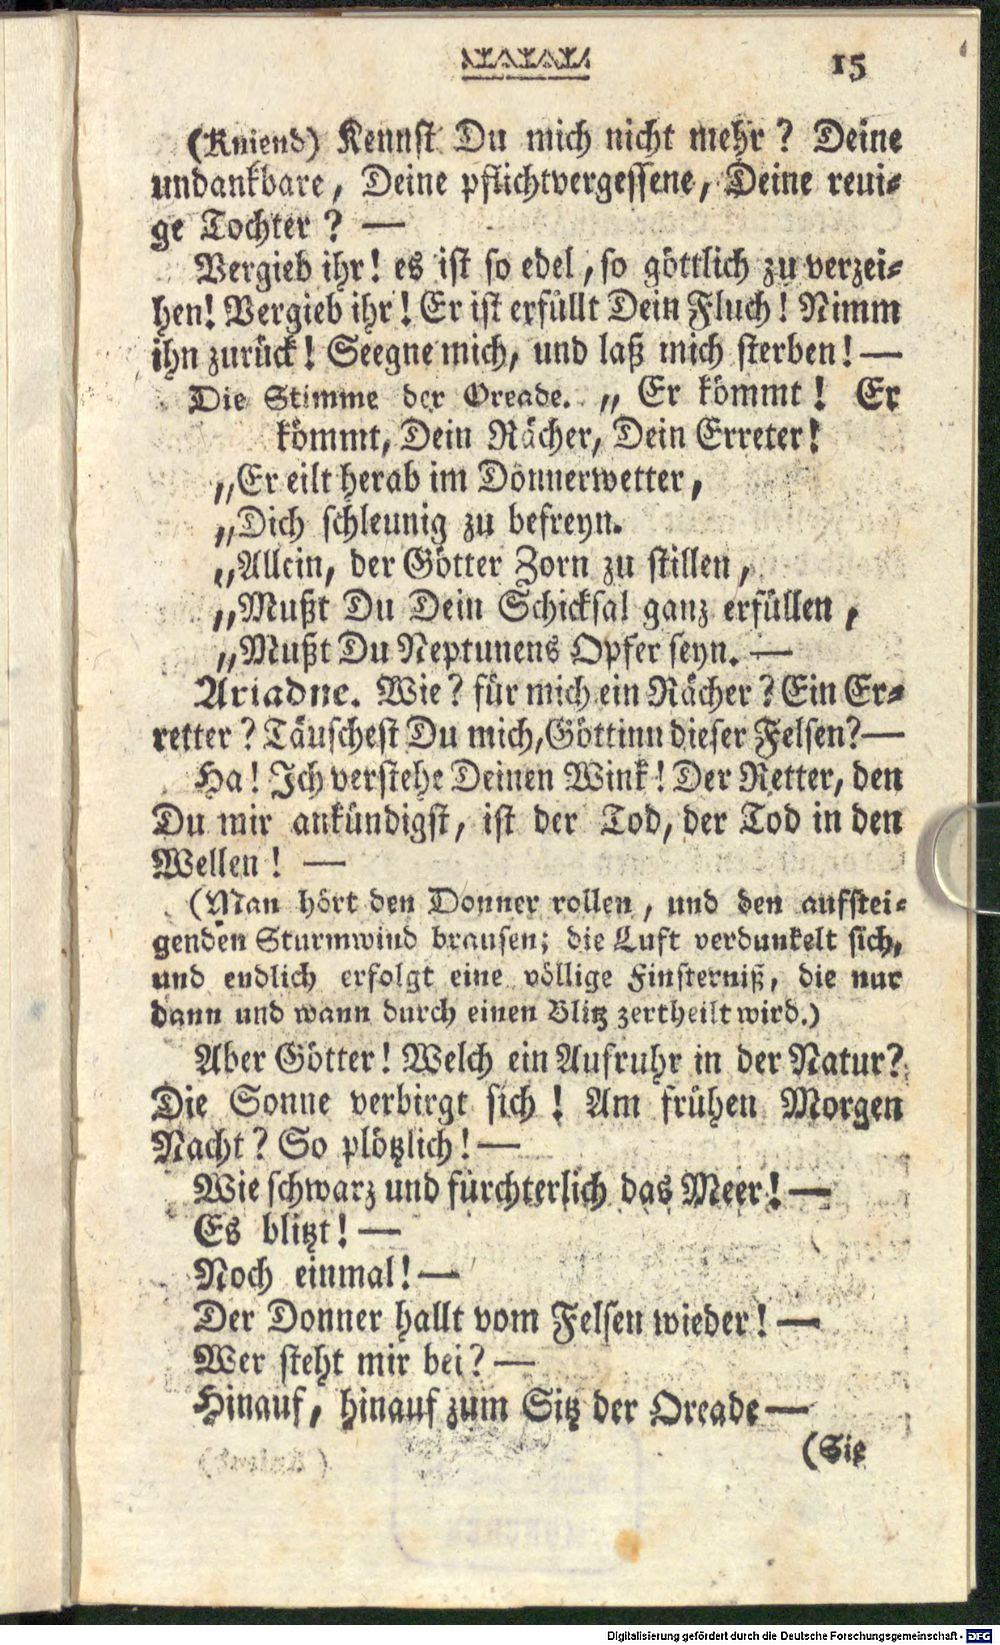 15
(Kniend) Kennst Du mich nicht mehr? Deine
undankbare, Deine pflichtvergessene, Deine reui-
ge Tochter? —
Vergieb ihr! es ist so edel, so göttlich zu verzei-
hen! Vergieb ihr! Er ist erfüllt Dein Fluch! Nimm
ihn zurück! Seegne mich, und laß mich sterben! —
Die Stimme der Oreade. „ Er kömmt! Er
kömmt, Dein Rächer, Dein Erreter!
„Er eilt herab im Donnerwetter,
„Dich schleunig zu befreyn.
„Allein, der Götter Zorn zu stillen,
„Mußt Du Dein Schicksal ganz erfüllen,
„Mußt Du Neptunens Opfer seyn. —
Ariadne. Wie? für mich ein Rächer? Ein Er-
retter? Täuschest Du mich, Göttinn dieser Felsen? —
Ha! Ich verstehe Deinen Wink! Der Retter, den
Du mir ankündigst, ist der Tod, der Tod in den
Wellen! —
(Man hört den Donner rollen, und den aufstei-
genden Sturmwind brausen; die Luft verdunkelt sich,
und endlich erfolgt eine völlige Finsterniß, die nur
dann und wann durch einen Blitz zertheilt wird.)
Aber Götter! Welch ein Aufruhr in der Natur?
Die Sonne verbirgt sich! Am frühen Morgen
Nacht? So plötzlich! —
Wie schwarz und fürchterlich das Meer! —
Es blitzt! —
Noch einmal! —
Der Donner hallt vom Felsen wieder! —
Wer steht mir bei? —
Hinauf, hinauf zum Sitz der Oreade —
(Sie
Digitalisierung gefördert durch die Deutsche Forschungsgemeinschaft - DFG